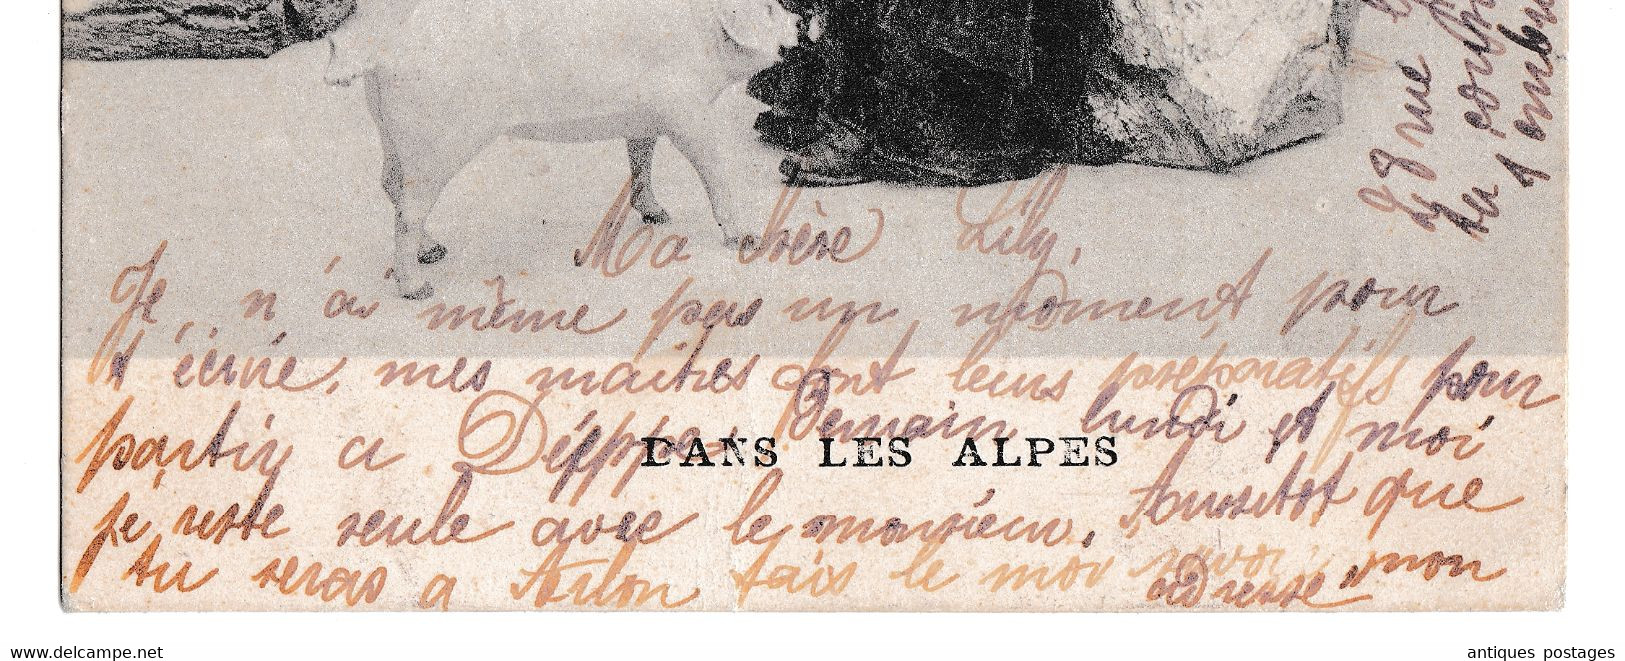 Ma chère Lily,
Je n'ai même pas un moment pour
t'écrire, mes maitres font leurs preparatifs pour
partir a Déppe Demain lundi et moi
DANS LES ALPES
je reste seule avec le monsieur, Aussitot que
tu seras a Arlon fais le moi savoir, mon
adresse
rue
delcampe.net
antiques postages